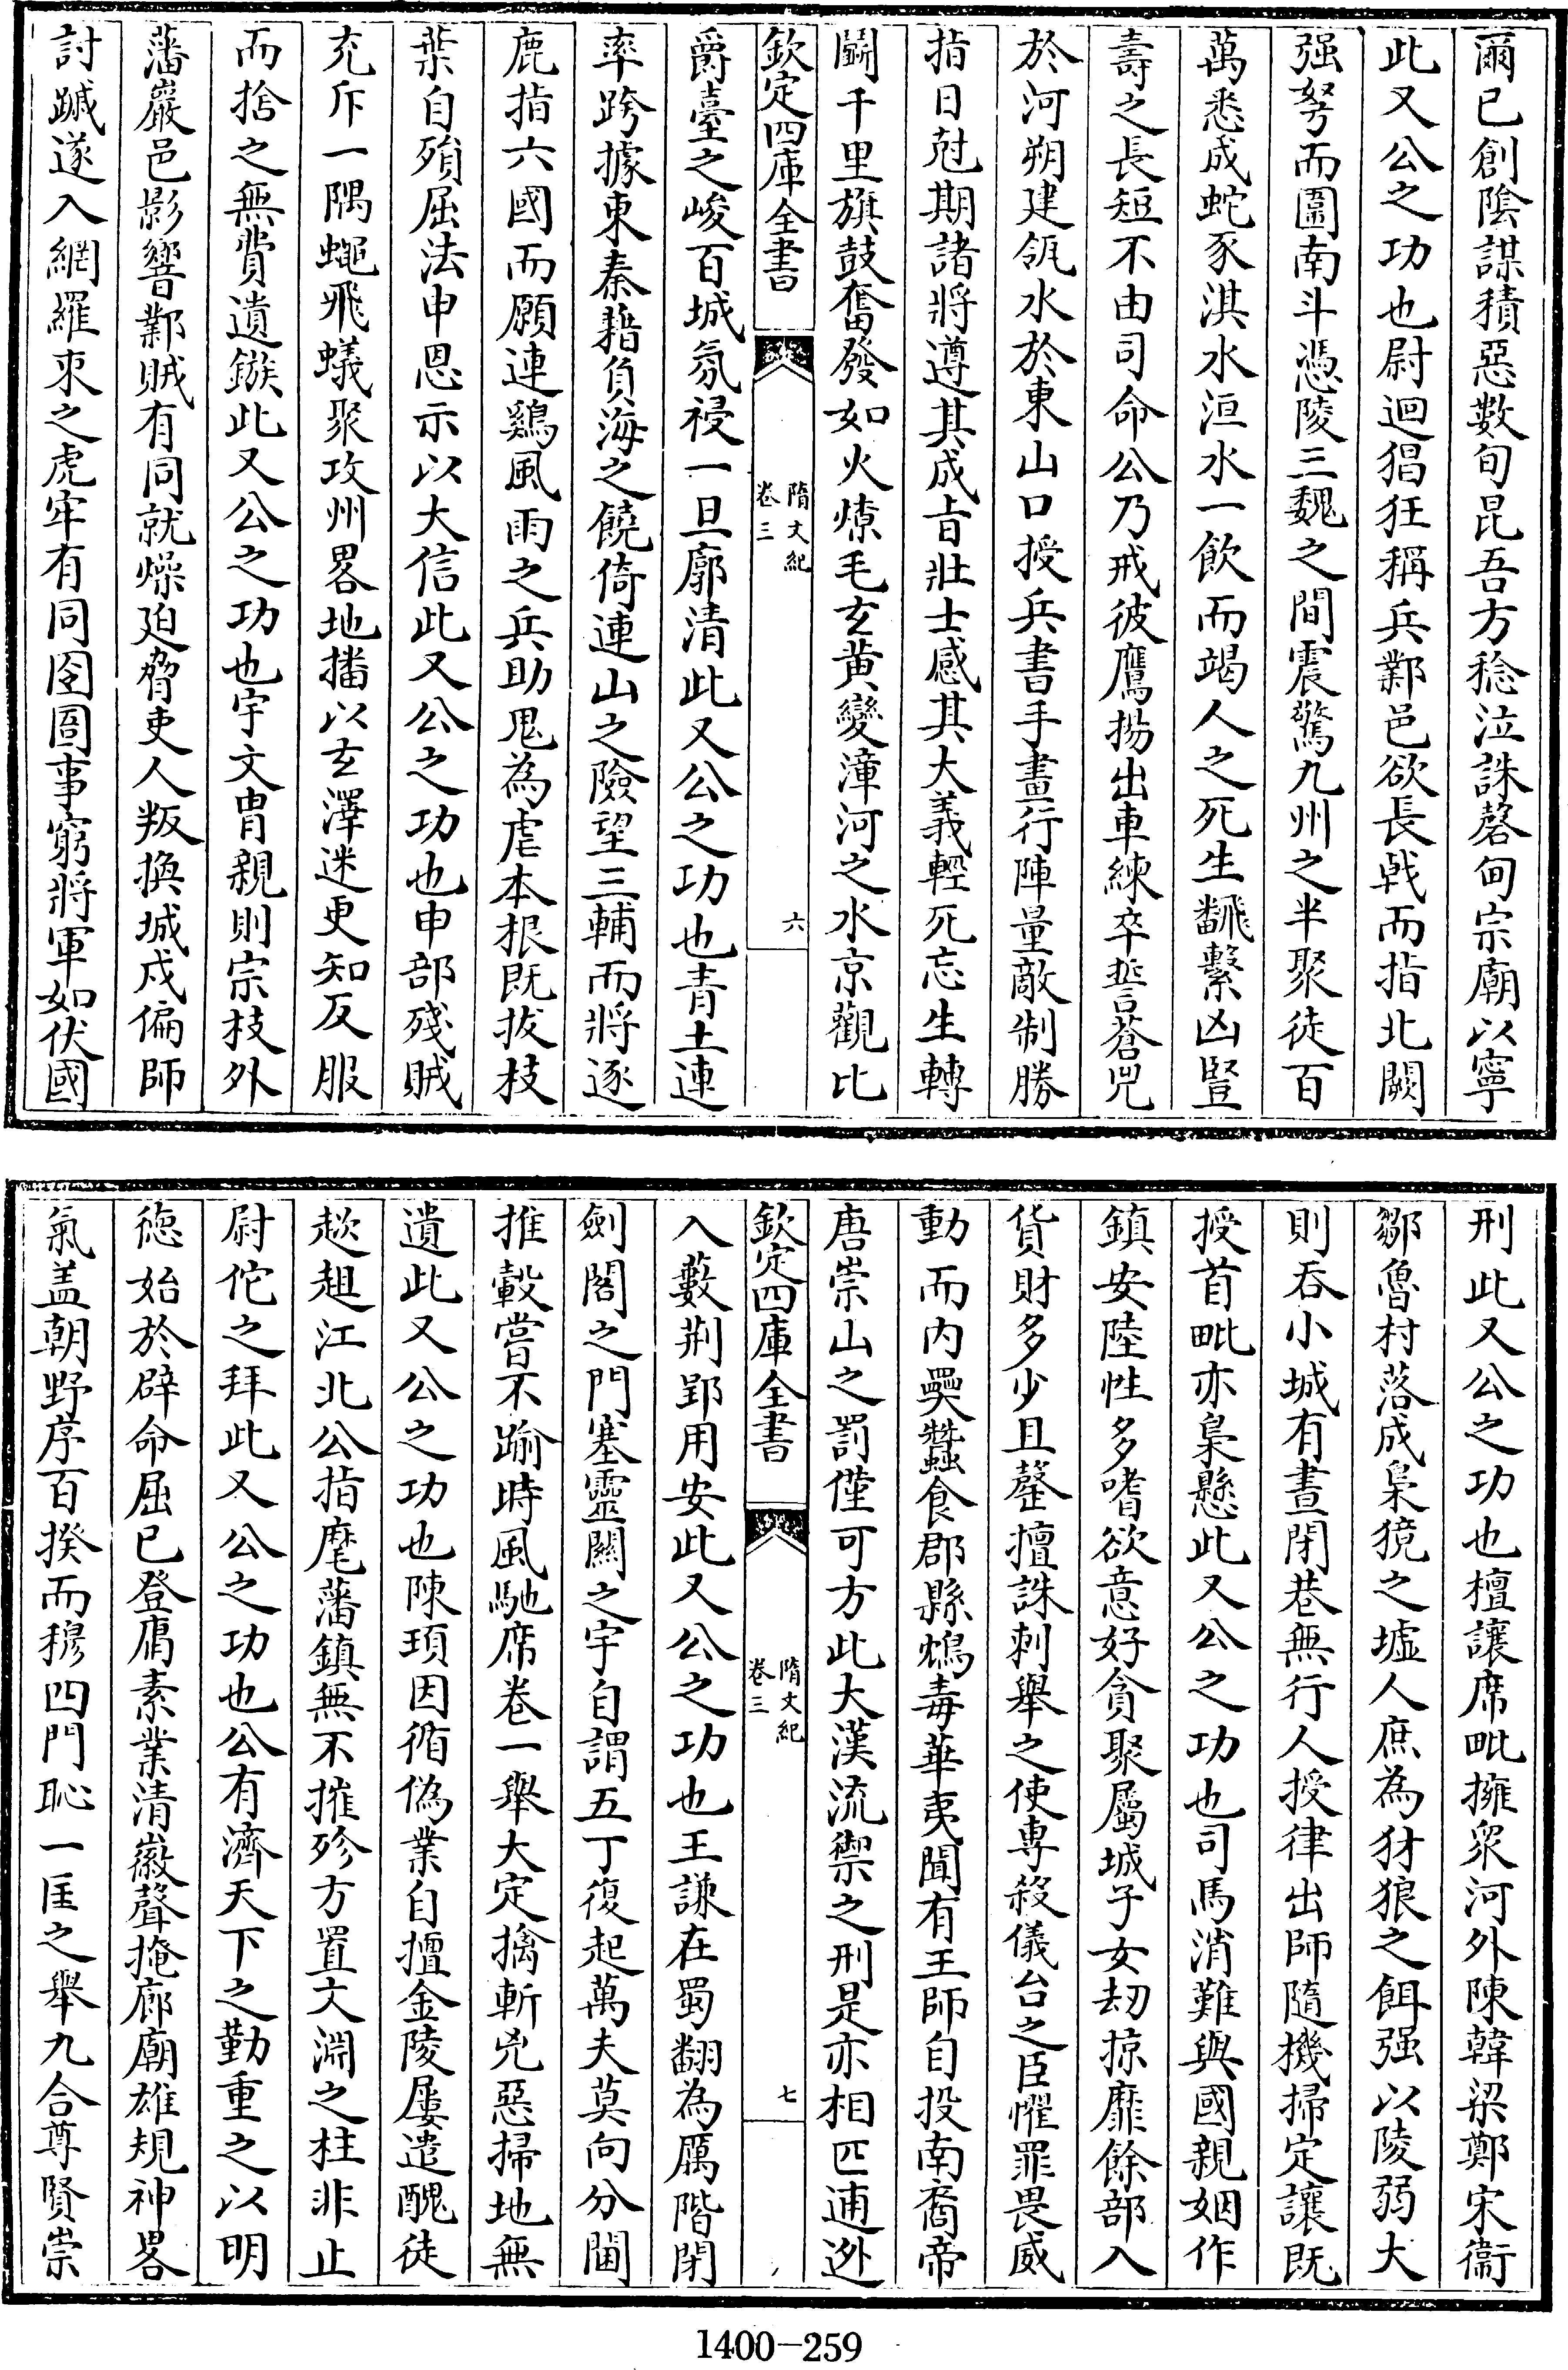 爾已創陰謀積惡數旬昆吾方稔泣誅磬甸宗廟以寧
此又公之功也尉迥猖狂稱兵鄴邑欲長戟而指北闕
强弩而圍南斗憑陵三魏之間震驚九州之半聚徒百
萬悉成蛇豕淇水洹水一飲而竭人之死生翻繫凶豎
壽之長短不由司命公乃戒彼鷹揚出車練卒誓蒼兕
於河朔建瓴水於東山口授兵書手畫行陣量敵制勝
指日尅期諸將遵其成旨壯士感其大義輕死忘生轉
鬭千里旗鼓奮發如火燎毛玄黄變漳河之水京觀比
欽定四庫全書
隋文紀
卷三
六
爵臺之峻百城氛祲一旦廓清此又公之功也青土連
率跨據東秦藉負海之饒倚連山之險望三輔而將逐
鹿指六國而願連鷄風雨之兵助鬼為虐本根既拔枝
葉自殞屈法申恩示以大信此又公之功也申部殘賊
充斥一隅蠅飛蟻聚攻州畧地播以玄澤迷更知反服
而捨之無費遺鏃此又公之功也宇文胄親則宗枝外
藩巖邑影響鄴賊有同就燥廹脅吏人叛換城戍偏師
討蹙遂入網羅束之虎牢有同囹圄事窮將軍如伏國
刑此又公之功也檀讓席毗擁衆河外陳韓梁鄭宋衞
鄒魯村落成梟獍之墟人庶為豺狼之餌强以陵弱大
則吞小城有晝閉巷無行人授律出師隨機掃定讓既
授首毗亦梟懸此又公之功也司馬消難與國親姻作
鎮安陸性多嗜欲意好貪聚屬城子女刼掠靡餘部入
貨財多少且罄擅誅刺舉之使専殺儀台之臣懼罪畏威
動而内奰蠶食郡縣鴆毒華夷聞有王師自投南裔帝
唐崇山之罰僅可方此大漢流禦之刑是亦相匹逋逊
欽定四庫全書
隋文紀
卷三
七
入藪荆郢用安此又公之功也王謙在蜀翻為厲階閉
劍閣之門塞靈關之宇自謂五丁復起萬夫莫向分閫
推轂嘗不踰時風馳席卷一舉大定擒斬兇惡掃地無
遺此又公之功也陳頊因循偽業自擅金陵屢遣醜徒
趑趄江北公指麾藩鎮無不摧殄方置文淵之柱非止
尉佗之拜此又公之功也公有濟天下之勤重之以明
徳始於辟命屈已登庸素業清徽聲掩廊廟雄規神畧
氣盖朝野序百揆而穆四門恥一匡之舉九合尊賢崇
1400-259